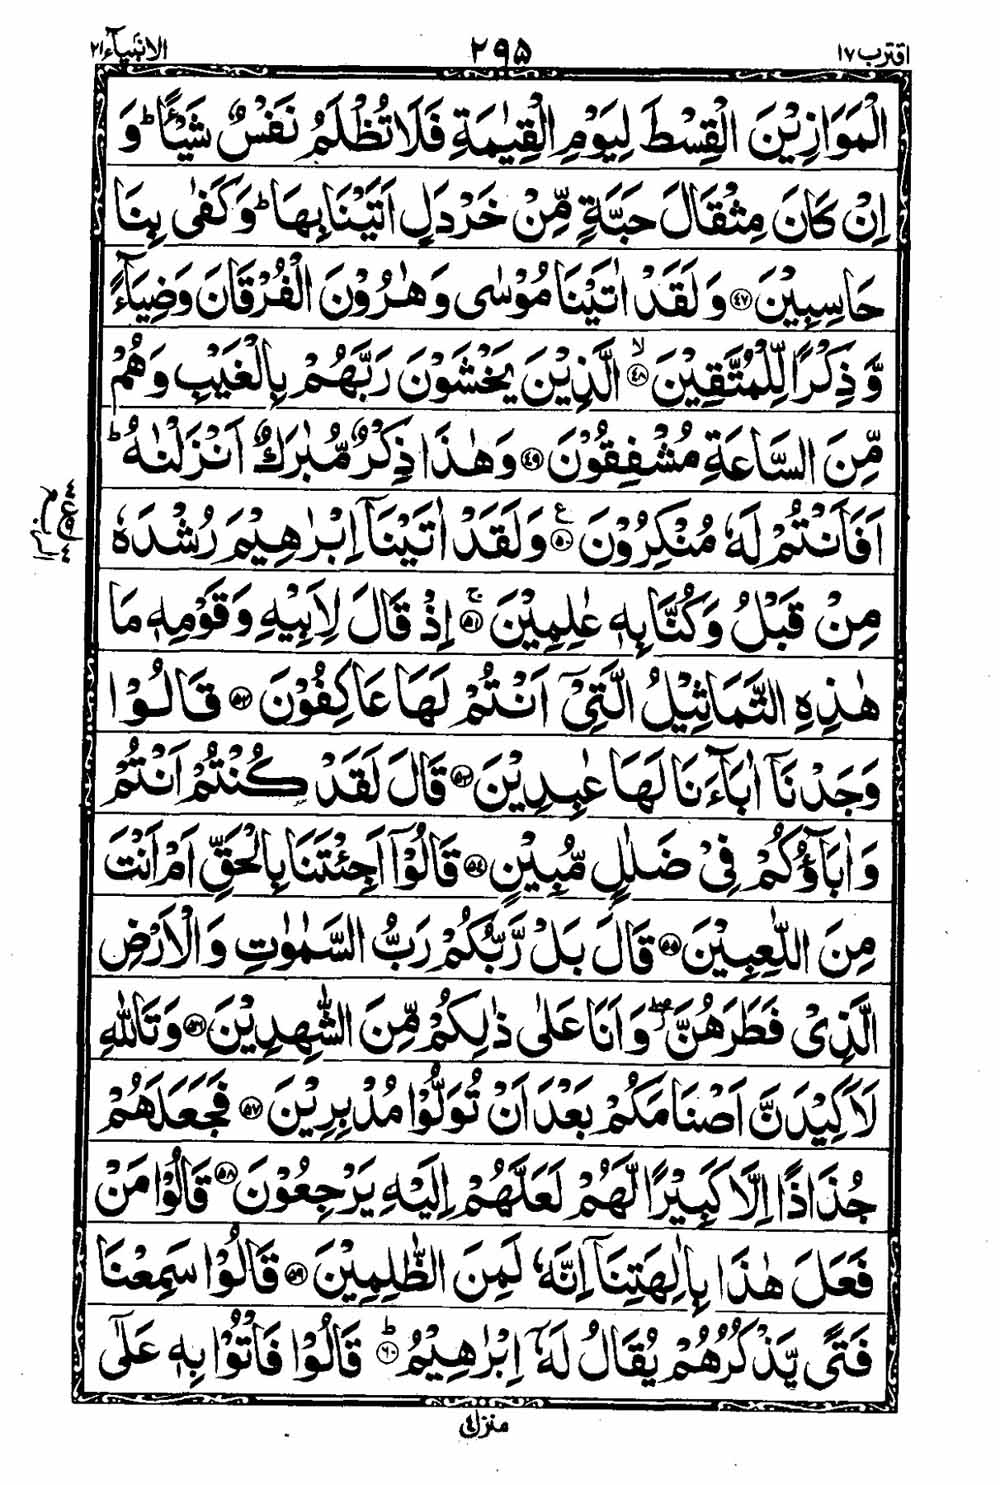 اقترب ١٧
٢٩٥
الانبیآء ٢١
الْمَوَازِیْنَ الْقِسْطَ لِیَوْمِ الْقِیٰمَةِ فَلَا تُظْلَمُ نَفْسٌ شَیْـًٔا ؕ وَ
اِنْ كَانَ مِثْقَالَ حَبَّةٍ مِّنْ خَرْدَلٍ اَتَیْنَا بِهَا ؕ وَ كَفٰی بِنَا
حَاسِبِیْنَ ﴿۴۷﴾ وَ لَقَدْ اٰتَیْنَا مُوْسٰی وَ هٰرُوْنَ الْفُرْقَانَ وَ ضِیَآءً
وَّ ذِكْرًا لِّلْمُتَّقِیْنَ ﴿ۙ۴۸﴾ الَّذِیْنَ یَخْشَوْنَ رَبَّهُمْ بِالْغَیْبِ وَ هُمْ
مِّنَ السَّاعَةِ مُشْفِقُوْنَ ﴿۴۹﴾ وَ هٰذَا ذِكْرٌ مُّبٰرَكٌ اَنْزَلْنٰهُ ؕ
اَفَاَنْتُمْ لَهٗ مُنْكِرُوْنَ ﴿۵۰﴾ ع وَ لَقَدْ اٰتَیْنَاۤ اِبْرٰهِیْمَ رُشْدَهٗ
مِنْ قَبْلُ وَ كُنَّا بِهٖ عٰلِمِیْنَ ﴿ۚ۵۱﴾ اِذْ قَالَ لِاَبِیْهِ وَ قَوْمِهٖ مَا
هٰذِهِ التَّمَاثِیْلُ الَّتِیْۤ اَنْتُمْ لَهَا عَاكِفُوْنَ ﴿۵۲﴾ قَالُوْا
وَجَدْنَاۤ اٰبَآءَنَا لَهَا عٰبِدِیْنَ ﴿۵۳﴾ قَالَ لَقَدْ كُنْتُمْ اَنْتُمْ
وَ اٰبَآؤُكُمْ فِیْ ضَلٰلٍ مُّبِیْنٍ ﴿۵۴﴾ قَالُوْۤا اَجِئْتَنَا بِالْحَقِّ اَمْ اَنْتَ
مِنَ اللّٰعِبِیْنَ ﴿۵۵﴾ قَالَ بَلْ رَّبُّكُمْ رَبُّ السَّمٰوٰتِ وَ الْاَرْضِ
الَّذِیْ فَطَرَهُنَّ ۖ وَ اَنَا عَلٰی ذٰلِكُمْ مِّنَ الشّٰهِدِیْنَ ﴿۵۶﴾ وَ تَاللّٰهِ
لَاَكِیْدَنَّ اَصْنَامَكُمْ بَعْدَ اَنْ تُوَلُّوْا مُدْبِرِیْنَ ﴿۵۷﴾ فَجَعَلَهُمْ
جُذٰذًا اِلَّا كَبِیْرًا لَّهُمْ لَعَلَّهُمْ اِلَیْهِ یَرْجِعُوْنَ ﴿۵۸﴾ قَالُوْا مَنْ
فَعَلَ هٰذَا بِاٰلِهَتِنَاۤ اِنَّهٗ لَمِنَ الظّٰلِمِیْنَ ﴿۵۹﴾ قَالُوْا سَمِعْنَا
فَتًی یَّذْكُرُهُمْ یُقَالُ لَهٗۤ اِبْرٰهِیْمُ ﴿ؕ۶۰﴾ قَالُوْا فَاْتُوْا بِهٖ عَلٰۤی
منزل ٤